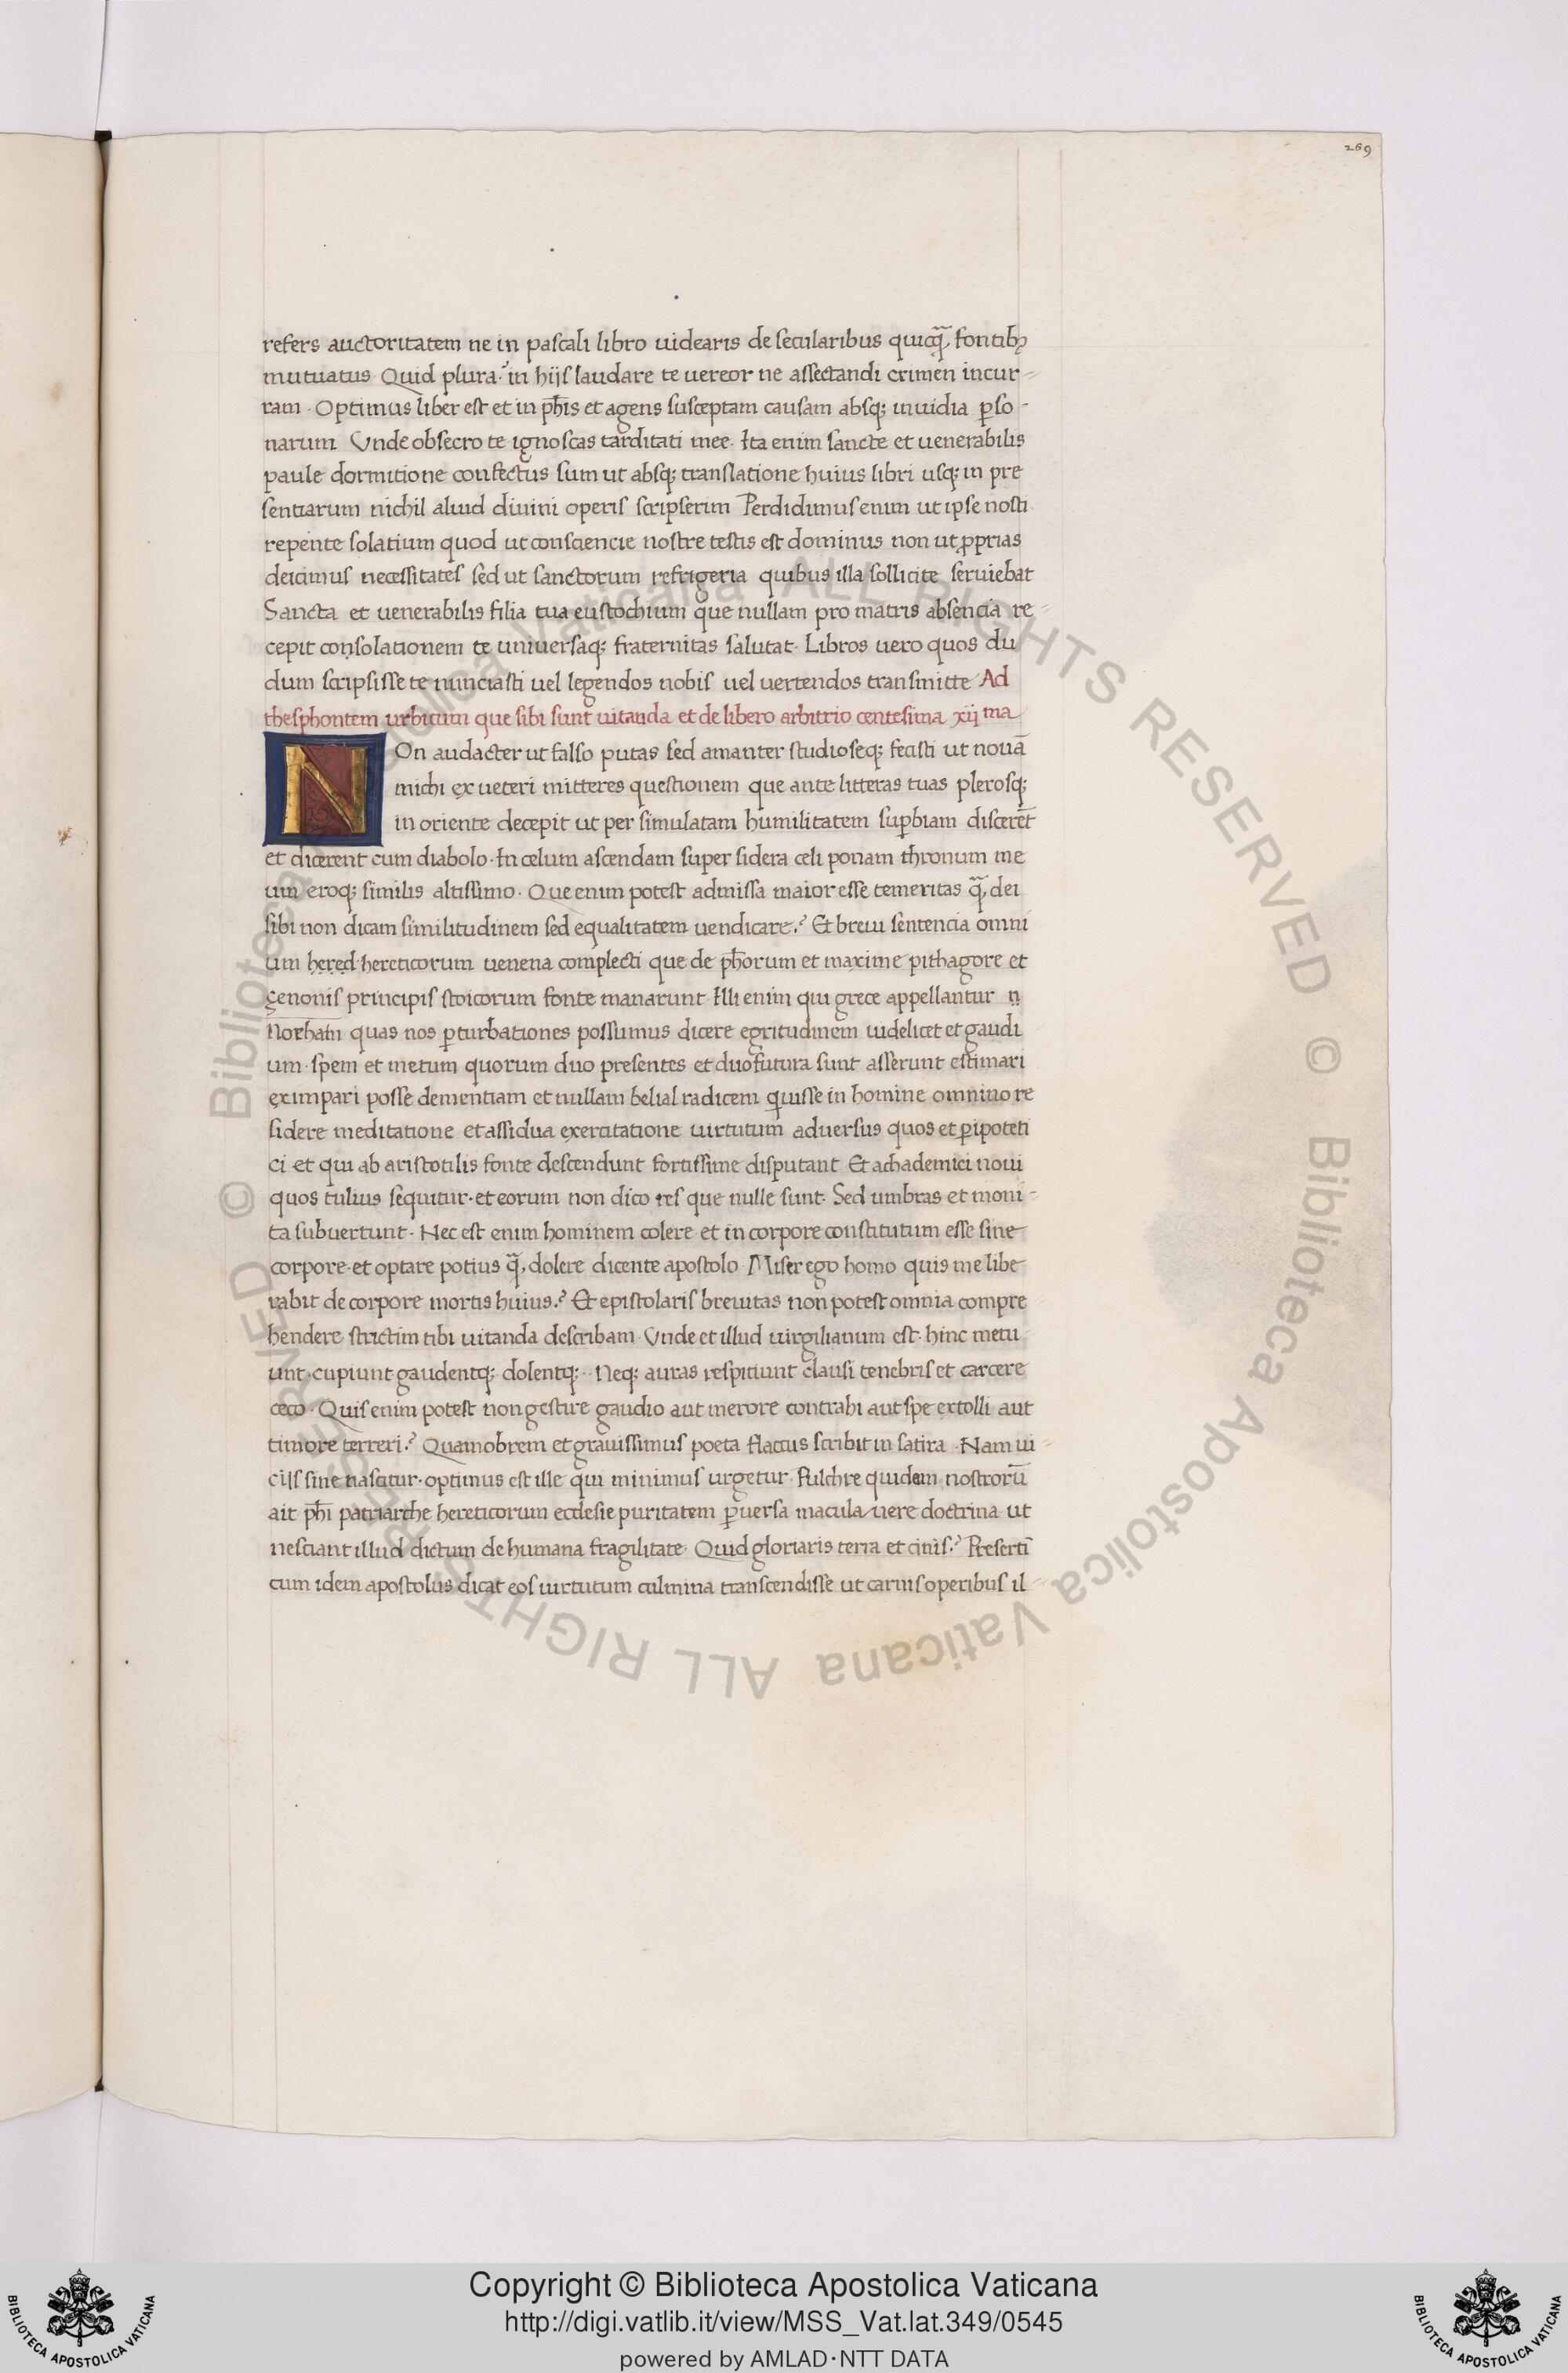 269
refers auctoritatem ne in pascali libro uidearis de secularibus quicq̃ȝ fontibȝ
mutuatus. Quid plura? in hijs laudare te uereor ne assectandi crimen incur-
ram. Optimus liber est et in ph̃is et agens susceptam causam absqȝ inuidia ꝑso-
narum Vnde obsecro te ignoscas tarditati mee. Ita enim sancte et uenerabilis
paule dormitione confectus sum ut absqȝ translatione huius libri usqȝ in pre
sentiarum nichil aliud diuini operis scripserim Perdidimus enim ut ipse nosti
repente solatium quod ut consciencie nostre testis est dominus non ut ꝓprias
deicimus necessitates sed ut sanctorum refrigeria quibus illa sollicite seruiebat
Sancta et uenerabilis filia tua eustochium que nullam pro matris absencia re-
cepit consolationem te uniuersaqȝ fraternitas salutat. Libros uero quos du
dum scripsisse te nunciasti uel legendos nobis uel uertendos transmitte Ad
thesphontem urbicum que sibi sunt uitanda et de libero arbitrio centesima xij ma
NOn audacter ut falso putas sed amanter studioseqȝ fecisti ut nouā
michi ex ueteri mitteres questionem que ante litteras tuas plerosqȝ
in oriente decepit ut per simulatam humilitatem suꝑbiam discerēt
et dicerent cum diabolo. In celum ascendam super sidera celi ponam thronum me
um eroqȝ similis altissimo. Que enim potest admissa maior esse temeritas q̃ȝ dei
sibi non dicam similitudinem sed equalitatem uendicare? Et breui sentencia omni
um hered hereticorum uenena complecti que de ph̃orum et maxime pithagore et
çenonis principis stoicorum fonte manarunt. Illi enim qui grece appellantur n
Norhatn quas nos ꝑturbationes possumus dicere egritudinem uidelicet et gaudi
um. spem et metum quorum duo presentes et duo futura sunt asserunt estimari
ex impari posse dementiam et nullam belial radicem quisse in homine omnino re
sidere meditatione et assidua exercitatione uirtutum aduersus quos et ꝑipoteti
ci et qui ab aristotilis fonte descendunt fortissime disputant Et achademici noui
quos tulius sequitur. et eorum non dico res que nulle sunt. Sed umbras et moni-
ta subuertunt. Nec est enim hominem colere et in corpore constitutum esse sine
corpore. et optare potius q̃ȝ dolere dicente apostolo Miser ego homo quis me libe
rabit de corpore mortis huius? Et epistolaris breuitas non potest omnia compre
hendere strictim tibi uitanda describam. Vnde et illud uirgilianum est. hinc metu
unt. cupiunt gaudentqȝ dolentqȝ. Neqȝ auras respitiunt clausi tenebris et carcere
ceco. Quis enim potest non gestire gaudio aut merore contrahi aut spe extolli aut
timore terreri? Quamobrem et grauissimus poeta flaccus scribit in satira. Nam ui-
cijs sine nascitur. optimus est ille qui minimus urgetur. Pulchre quidem nostrorū
ait ph̃i patriarche hereticorum ecclesie puritatem ꝑuersa macula uere doctrina ut
nesciant illud dictum de humana fragilitate. Quid gloriaris terra et cinis? Presertī
cum idem apostolus dicat eos uirtutum culmina transcendisse ut carnis operibus il-
© Biblioteca Apostolica Vaticana ALL RIGHTS RESERVED © Biblioteca Apostolica Vaticana ALL RIGHTS RESERVED
BIBLIOTECA APOSTOLICA VATICANA
Copyright © Biblioteca Apostolica Vaticana
http://digi.vatlib.it/view/MSS_Vat.lat.349/0545
powered by AMLAD·NTT DATA
BIBLIOTECA APOSTOLICA VATICANA